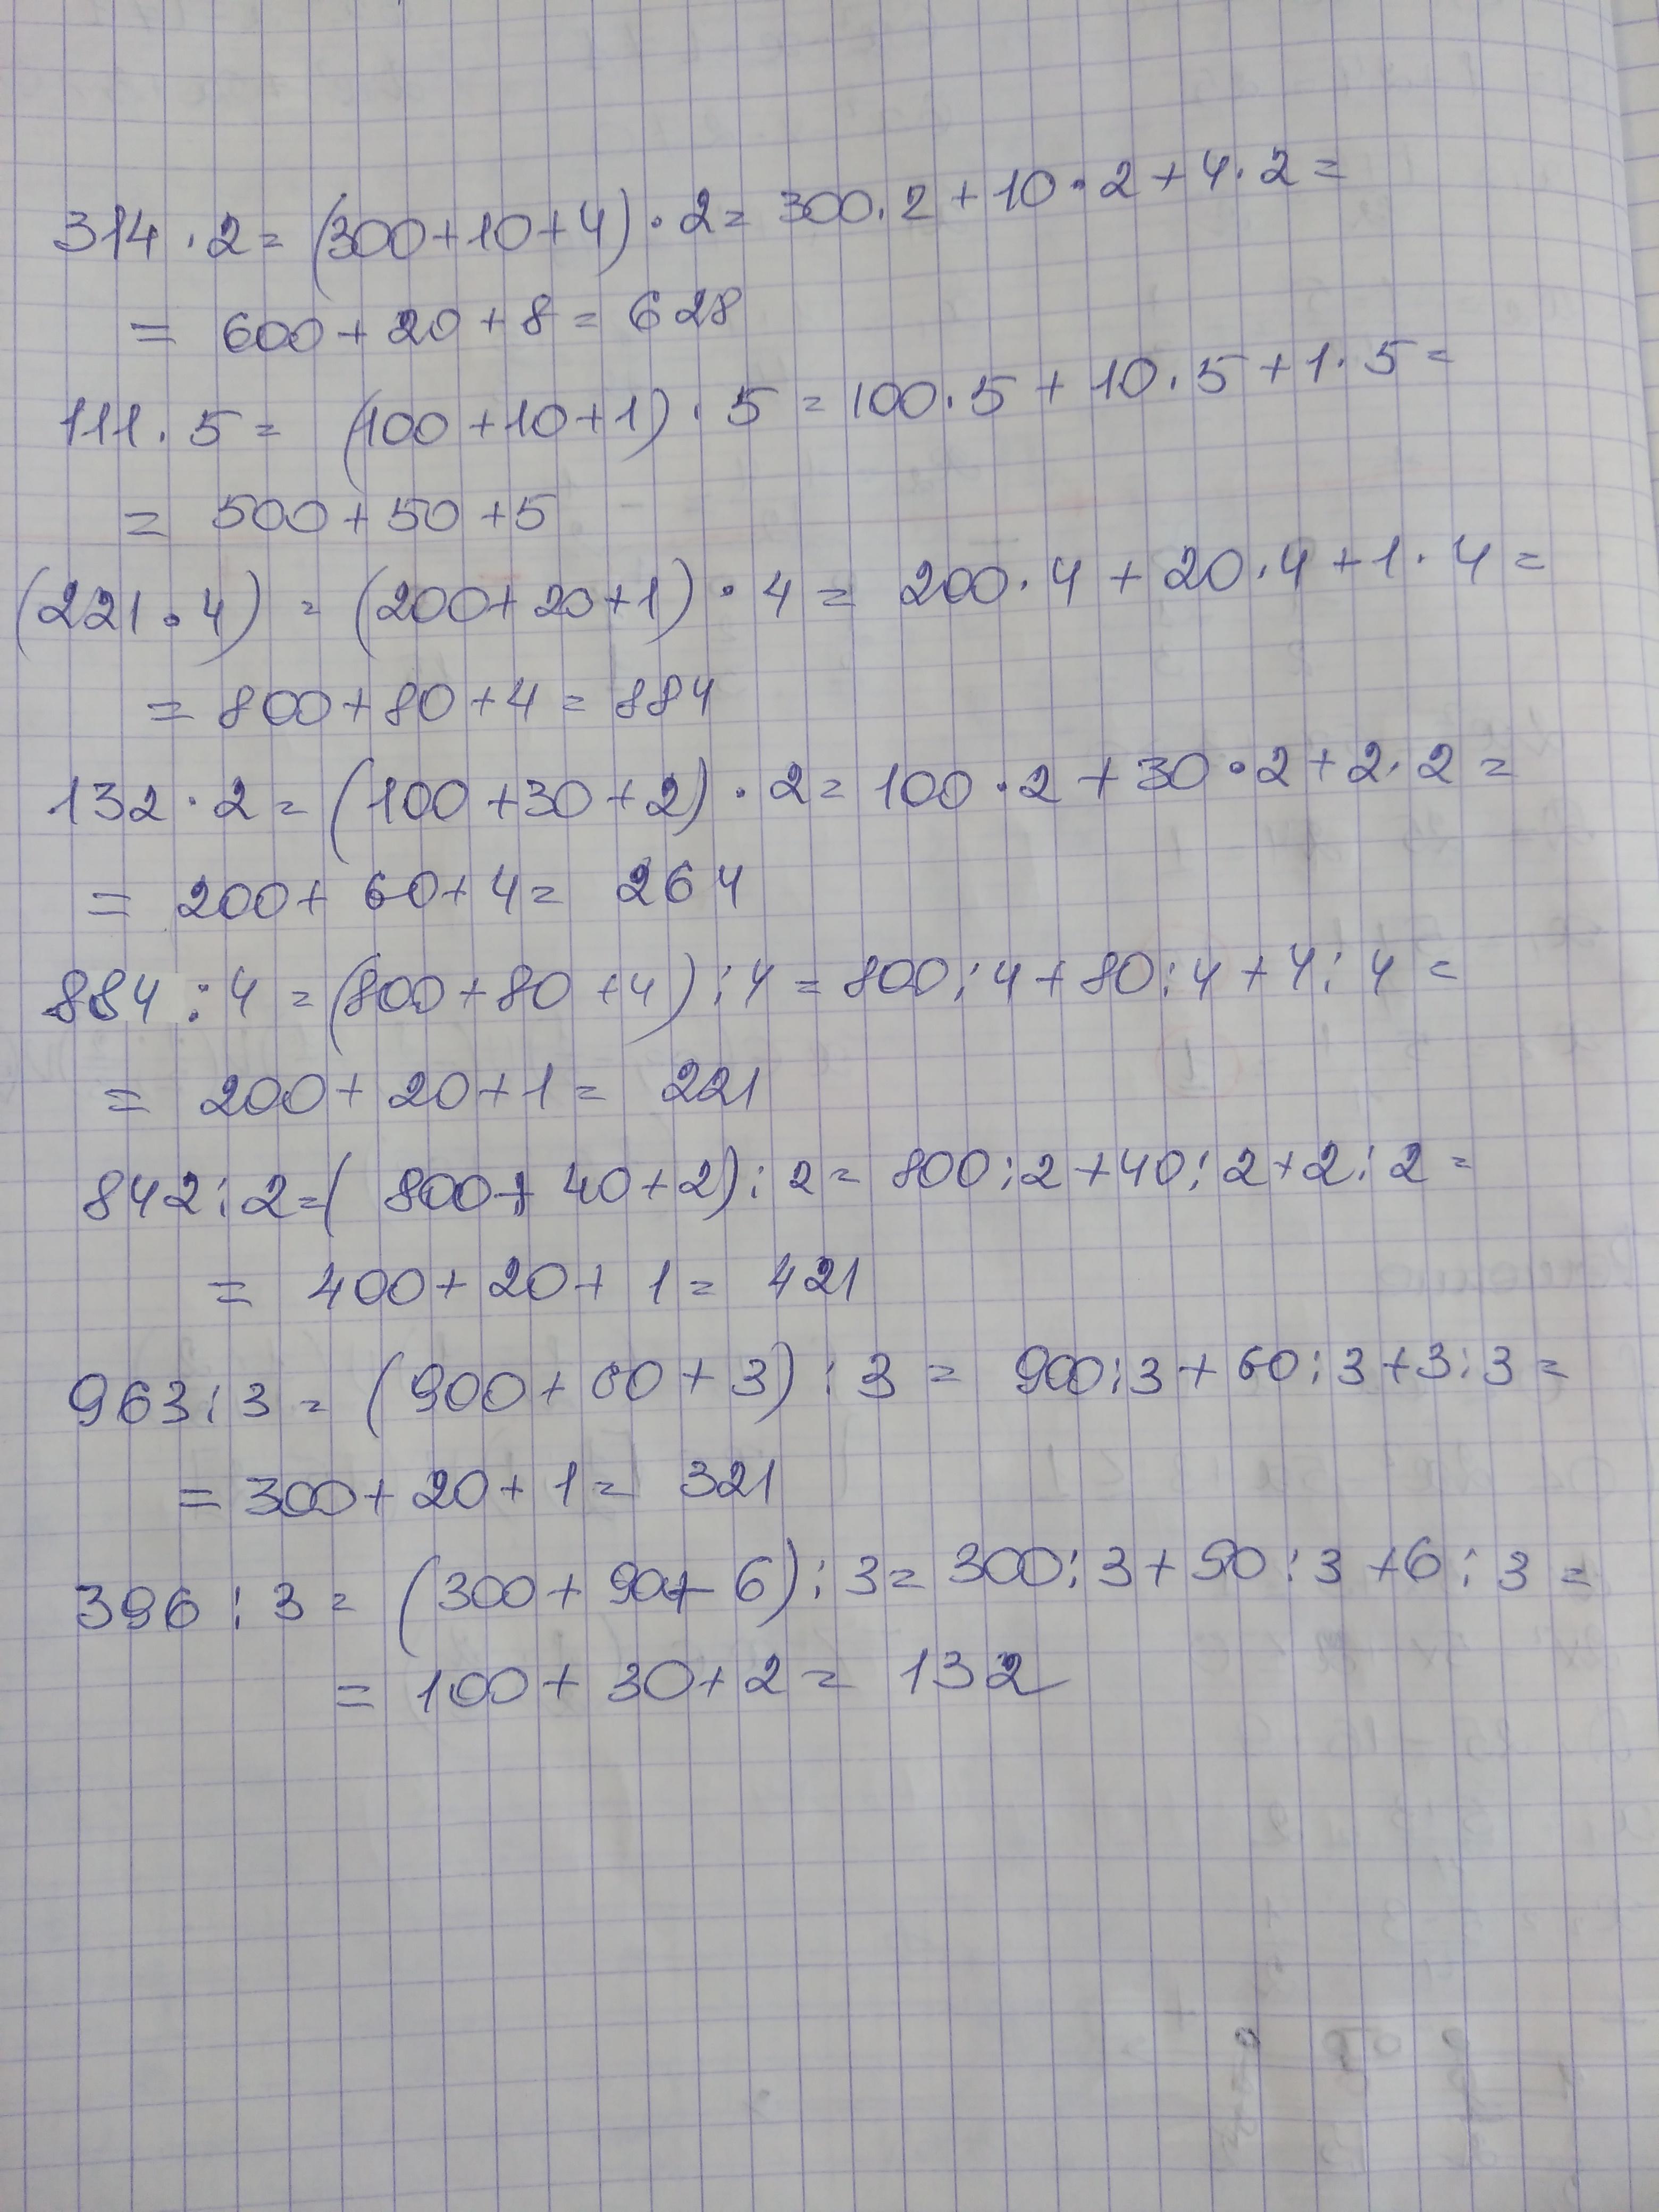 314 · 2 = (300+10+4) · 2 = 300 · 2 + 10 · 2 + 4 · 2 =
= 600 + 20 + 8 = 628
111 · 5 = (100 + 10 + 1) · 5 = 100 · 5 + 10 · 5 + 1 · 5 =
= 500 + 50 + 5
(221 · 4) = (200 + 20 + 1) · 4 = 200 · 4 + 20 · 4 + 1 · 4 =
= 800 + 80 + 4 = 884
132 · 2 = (100 + 30 + 2) · 2 = 100 · 2 + 30 · 2 + 2 · 2 =
= 200 + 60 + 4 = 264
884 : 4 = (800 + 80 + 4) : 4 = 800 : 4 + 80 : 4 + 4 : 4 =
= 200 + 20 + 1 = 221
842 : 2 = (800 + 40 + 2) : 2 = 800 : 2 + 40 : 2 + 2 : 2 =
= 400 + 20 + 1 = 421
963 : 3 = (900 + 60 + 3) : 3 = 900 : 3 + 60 : 3 + 3 : 3 =
= 300 + 20 + 1 = 321
396 : 3 = (300 + 90 + 6) : 3 = 300 : 3 + 90 : 3 + 6 : 3 =
= 100 + 30 + 2 = 132